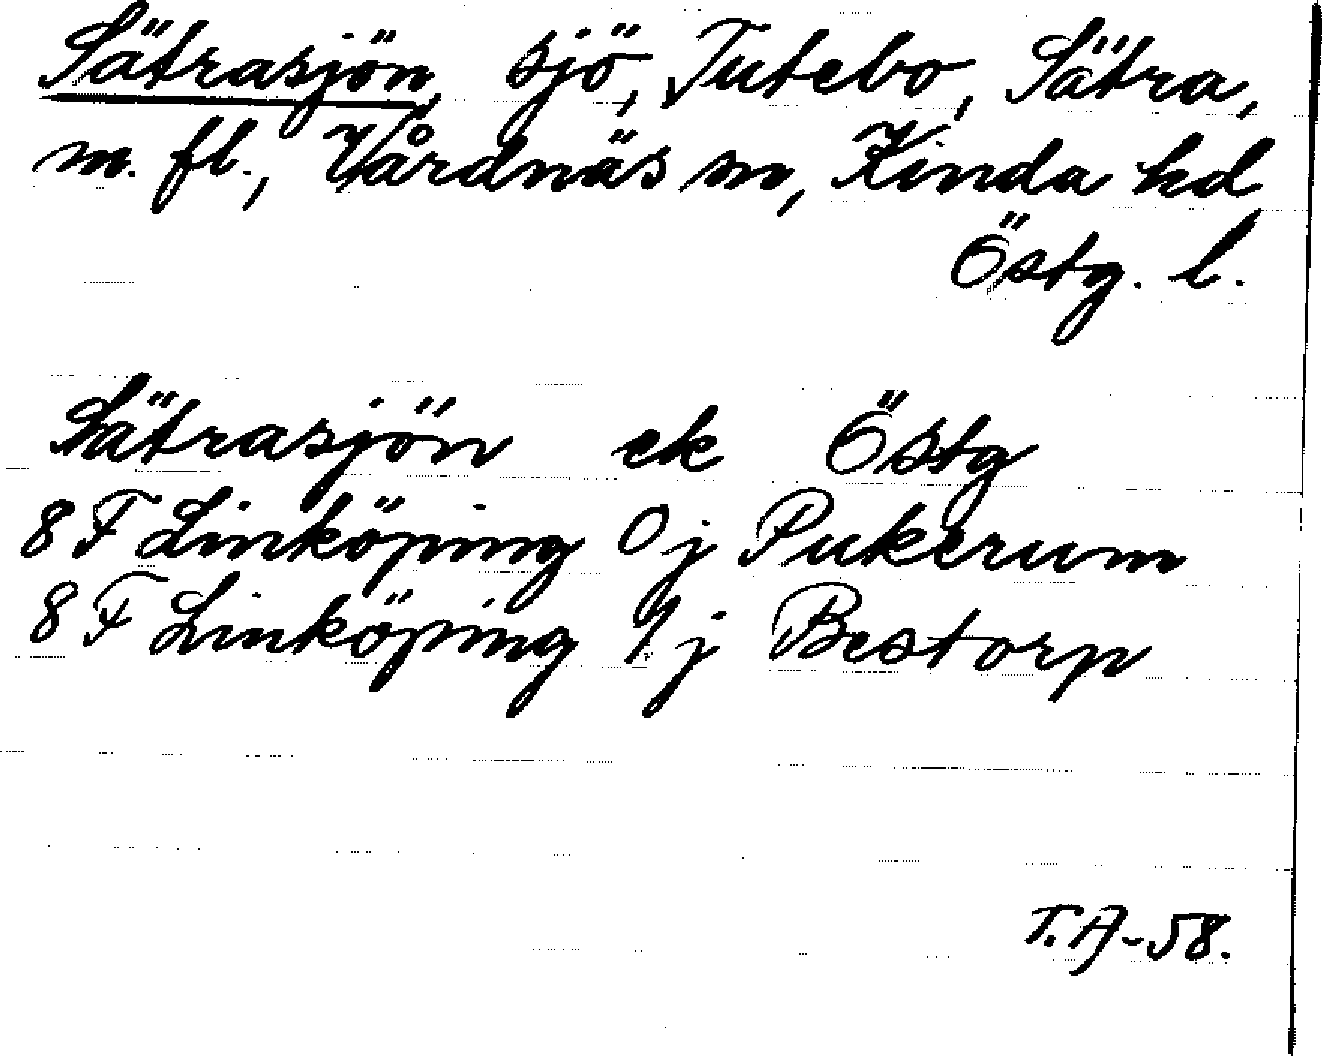 Sätrasjön, sjö, Tutebo, Sätra,
m. fl., Vårdnäs sn, Kinda hd
Östg. l.
Sätrasjön ek Östg
8 F Linköping 0j Pukerum
8 F Linköping 1j Bestorp
T.A-58.